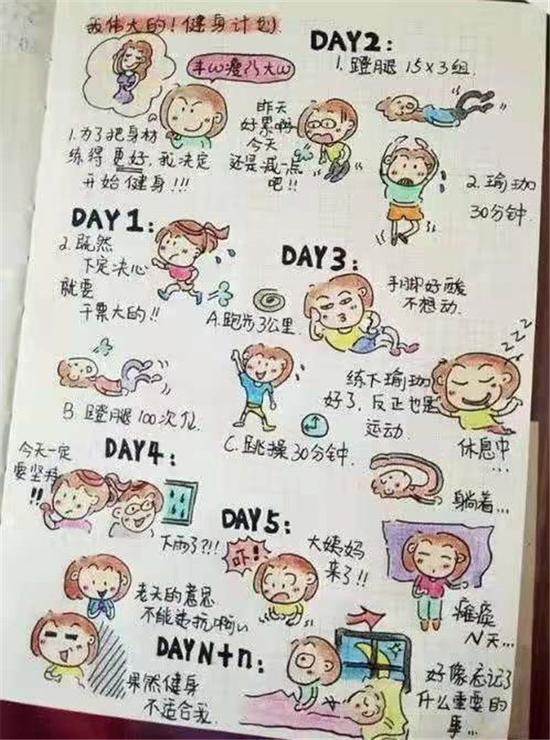 我伟大的!健身计划
丰ω瘦乃大ω
1.为了把身材
练得更好,我决定
开始健身!!!
DAY 1:
2.既然
下定决心
就要
干票大的!!
A.跑步3公里.
B 蹬腿100次
C.跳操30分钟.
DAY2:
1.蹬腿 15×3组.
昨天
好累啊
今天
还是减一点
吧!!
2.瑜珈
30分钟.
DAY3
手脚好酸
不想动.
练下瑜珈
好了,反正也是
运动.
zzz
休息中
...
躺着...
DAY4:
今天一定
要坚持
!!
下雨了?!!
老天的意思
不能违抗啊
DAY5:
吓!
大姨妈
来了!!
瘫痪
N天...
DAYN+n:
果然健身
不适合我.
好像忘记了
什么重要的
事...